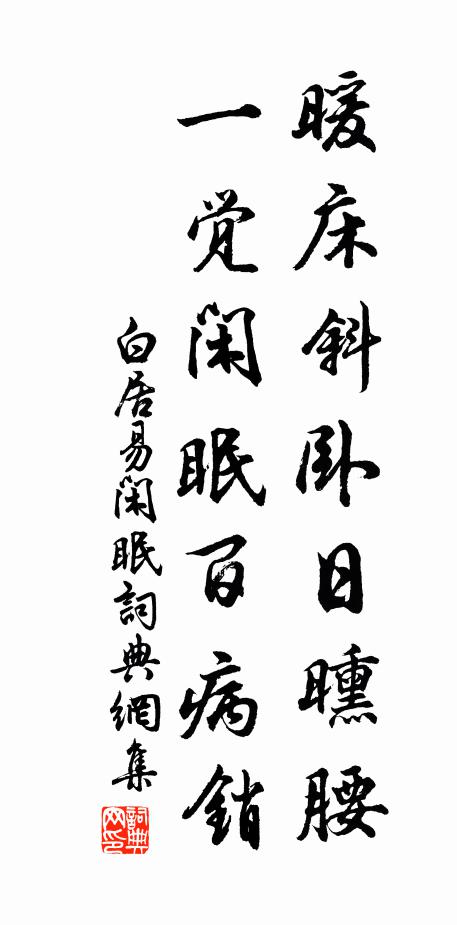 暖床斜卧日曛腰
一觉闲眠百病銷
白居易闲眠詞典網集
詞典网印